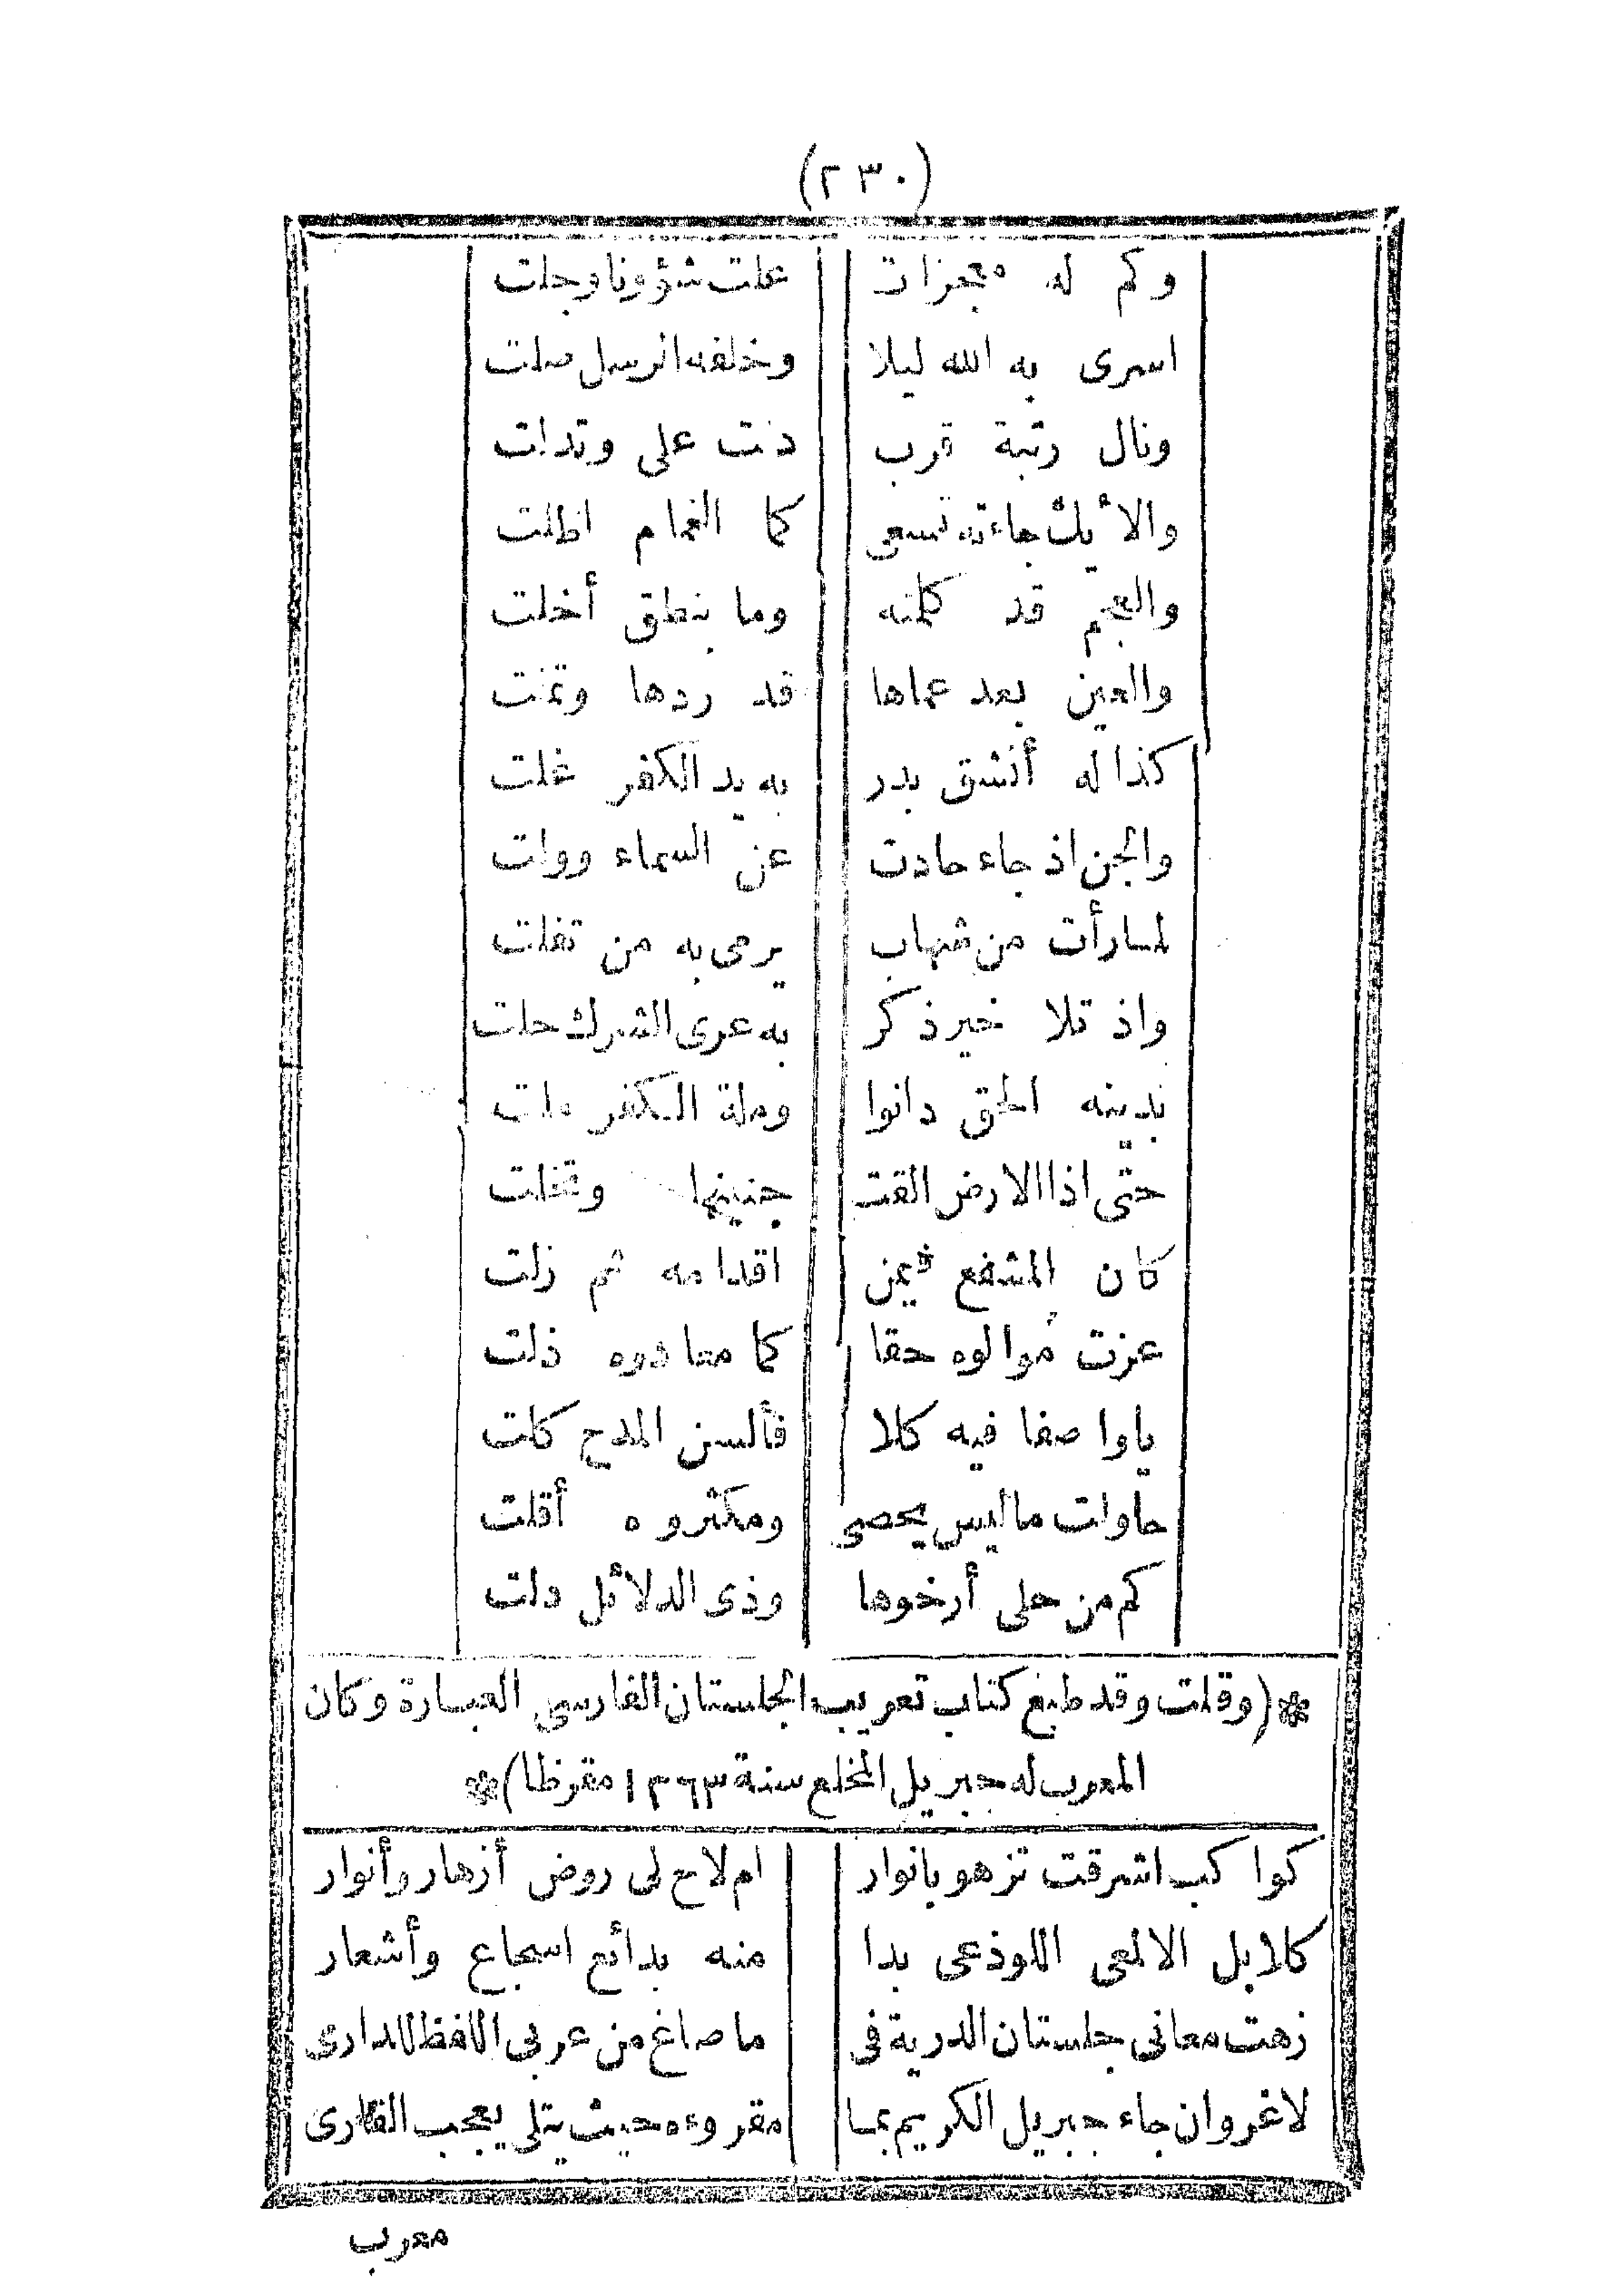 (٢٣٠)
وكم له معجزات علت شؤونا وجلت
اسرى به الله ليلا وخلفه الرسل صلت
ونال رتبة قرب دنت على وتدلت
والأيك جاءته تسعى كما الغمام اظلت
والعجم قد كلمته وما بنطق أخلت
والعين بعد عماها قد ردها وتمنت
كذا له أنشق بدر به يد الكفر غلت
والجن اذ جاء حادت عن السماء وولت
لما رأت من شهاب يرمى به من تفلت
واذ تلا خير ذكر به عرى الشرك حلت
بدينه الحق دانوا وملة الكفر ملت
حتى اذا الارض القت جنينها وتخلت
كان المشفع فيمن اقدامه ثم زلت
عزت موالوه حقا كما معادوه ذلت
ياواصفا فيه كلا فألسن المدح كلت
حاولت ماليس يحصى ومكثروه أقلت
كم من حلى أرخوها وذى الدلائل دلت
*(وقلت وقد طبع كتاب تعريب الجلستان الفارسى العبارة وكان
المعرب له جبريل المخلع سنة ١٢٦٣ مقرظا)*
كواكب اشرقت تزهو بانوار ام لاح لى روض أزهار وأنوار
كلا بل الالمعى اللوذعى بدا منه بدائع اسجاع وأشعار
زهت معانى جلستان الدرية فى ما صاغ من عربى اللفظ للدارى
لاغروان جاء جبريل الكريم بما مقروءه حيث يتلى يعجب القارى
معرب